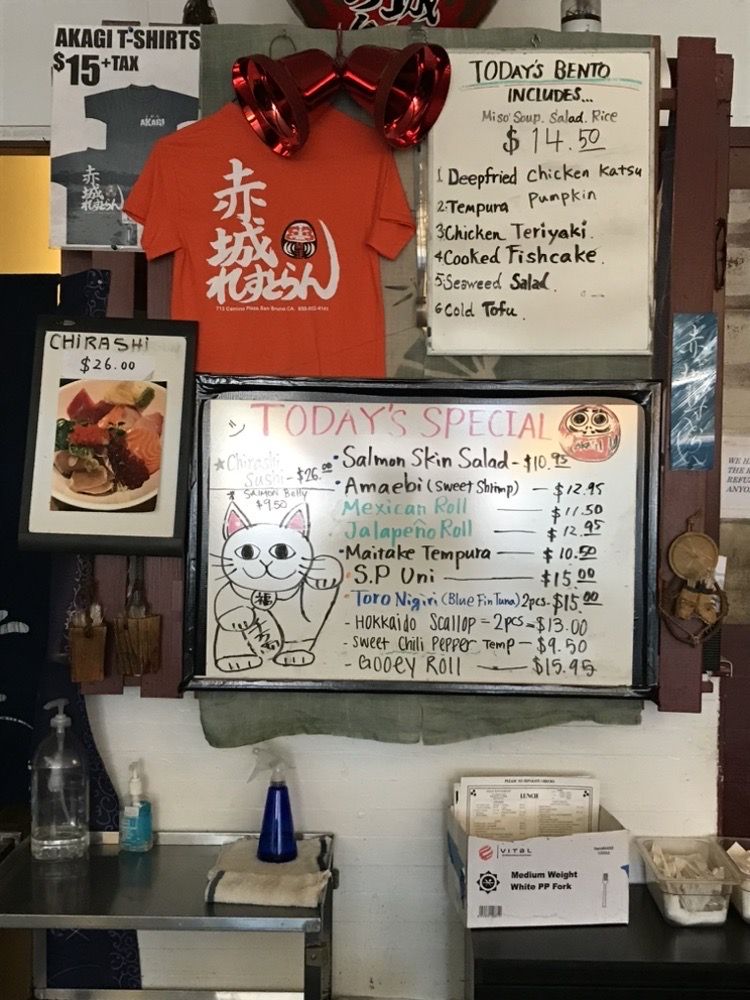 AKAGI T-SHIRTS
$15+TAX
AKAGI
赤城
れすとらん
赤城
れすとらん
TODAY'S BENTO
INCLUDES...
Miso Soup. Salad. Rice
$14.50
1. Deepfried Chicken Katsu
2. Tempura Pumpkin
3. Chicken Teriyaki.
4. Cooked Fishcake.
5. Seaweed Salad.
6. Cold Tofu.
CHIRASHI
$26.00
TODAY'S SPECIAL
★Chirashi
Sushi - $26.00
* Salmon Belly
$9.50
• Salmon Skin Salad - $10.95
• Amaebi (Sweet Shrimp) - $12.95
Mexican Roll - $11.50
Jalapeño Roll - $12.95
• Maitake Tempura - $10.50
• S.P Uni - $15.00
• Toro Nigiri (Blue Fin Tuna) 2pcs - $15.00
- HOKKAIDO SCALLOP - 2pcs - $13.00
- Sweet Chili Pepper Temp - $9.50
- GOOEY ROLL - $15.95
福
赤城れすとらん
LUNCH
VITAL
Medium Weight
White PP Fork